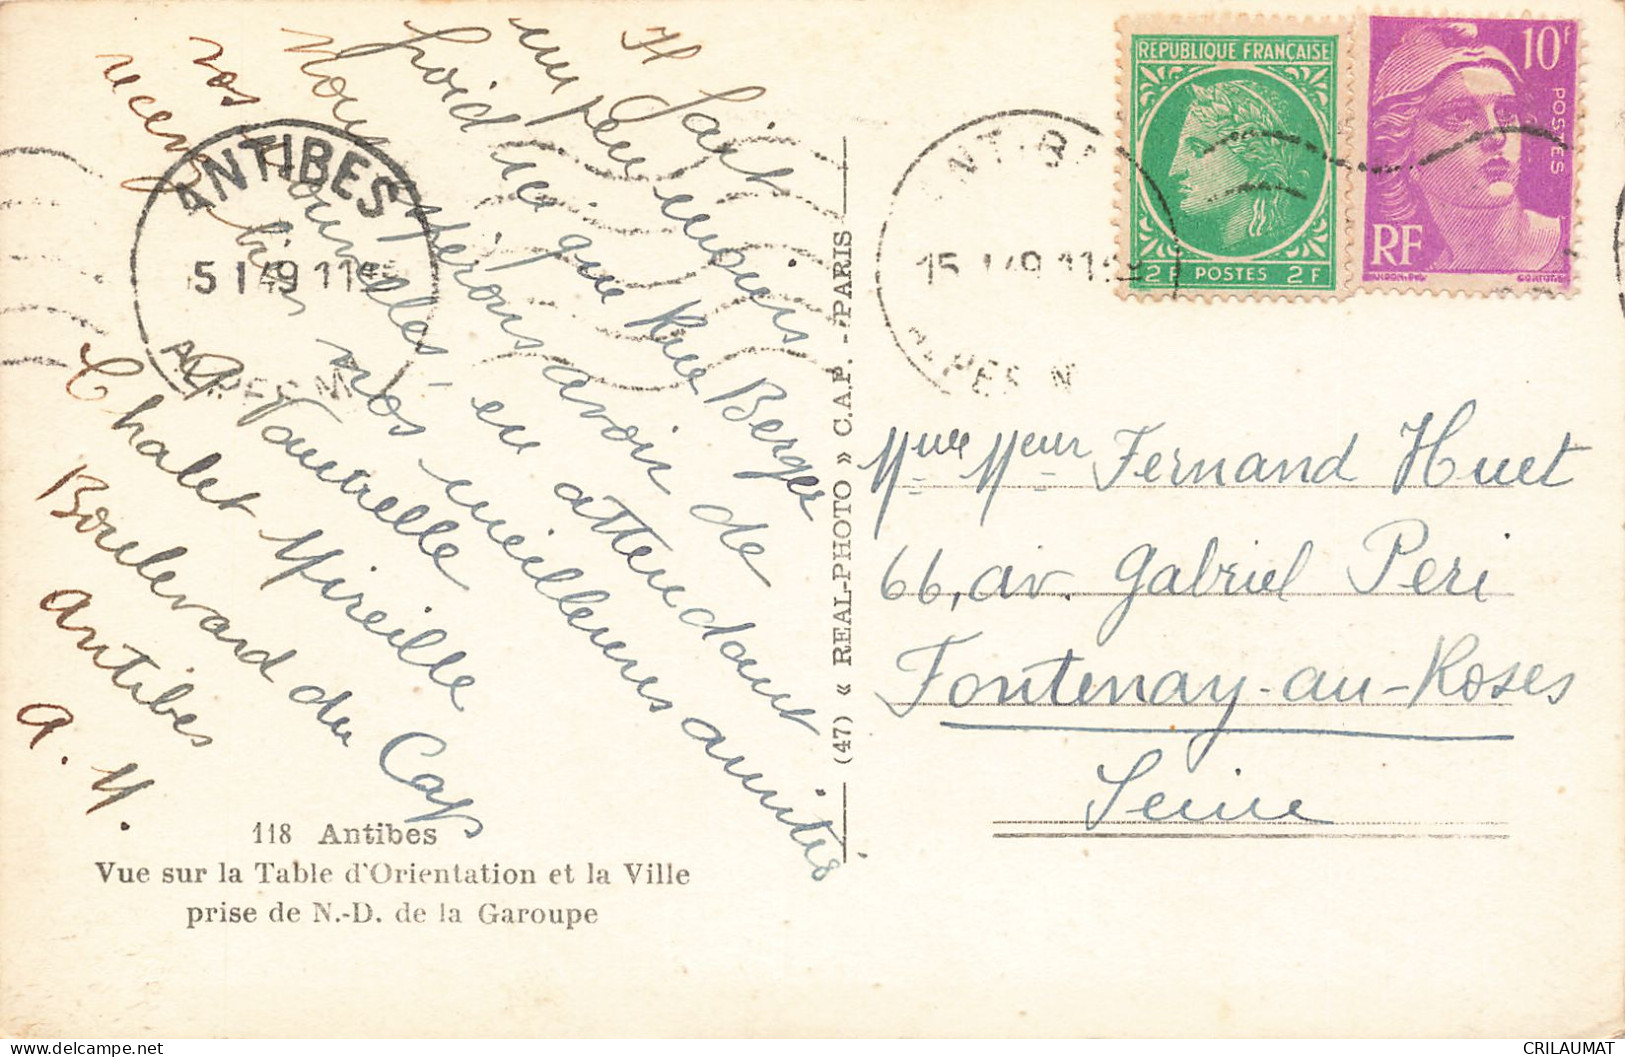 Il fait
un peu moins
froid ici que Rue Berger
Nous espérons avoir de
vos nouvelles en attendant
recevez bien nos meilleures amitiés
G Vautrelle
Chalet Mireille
Boulevard du Cap
Antibes
A. M.
118 Antibes
Vue sur la Table d'Orientation et la Ville
prise de N.-D. de la Garoupe
(47) « REAL-PHOTO » C.A.P. - PARIS
ANTIBES
15 1 49 11
ALPES M
ANTIBES
15 1 49 11
ALPES M
REPUBLIQUE FRANÇAISE
2F POSTES 2F
10F
POSTES
RF
Mme Meur Fernand Huet
66, av. Gabriel Peri
Fontenay-au-Roses
Seine
CRILAUMAT